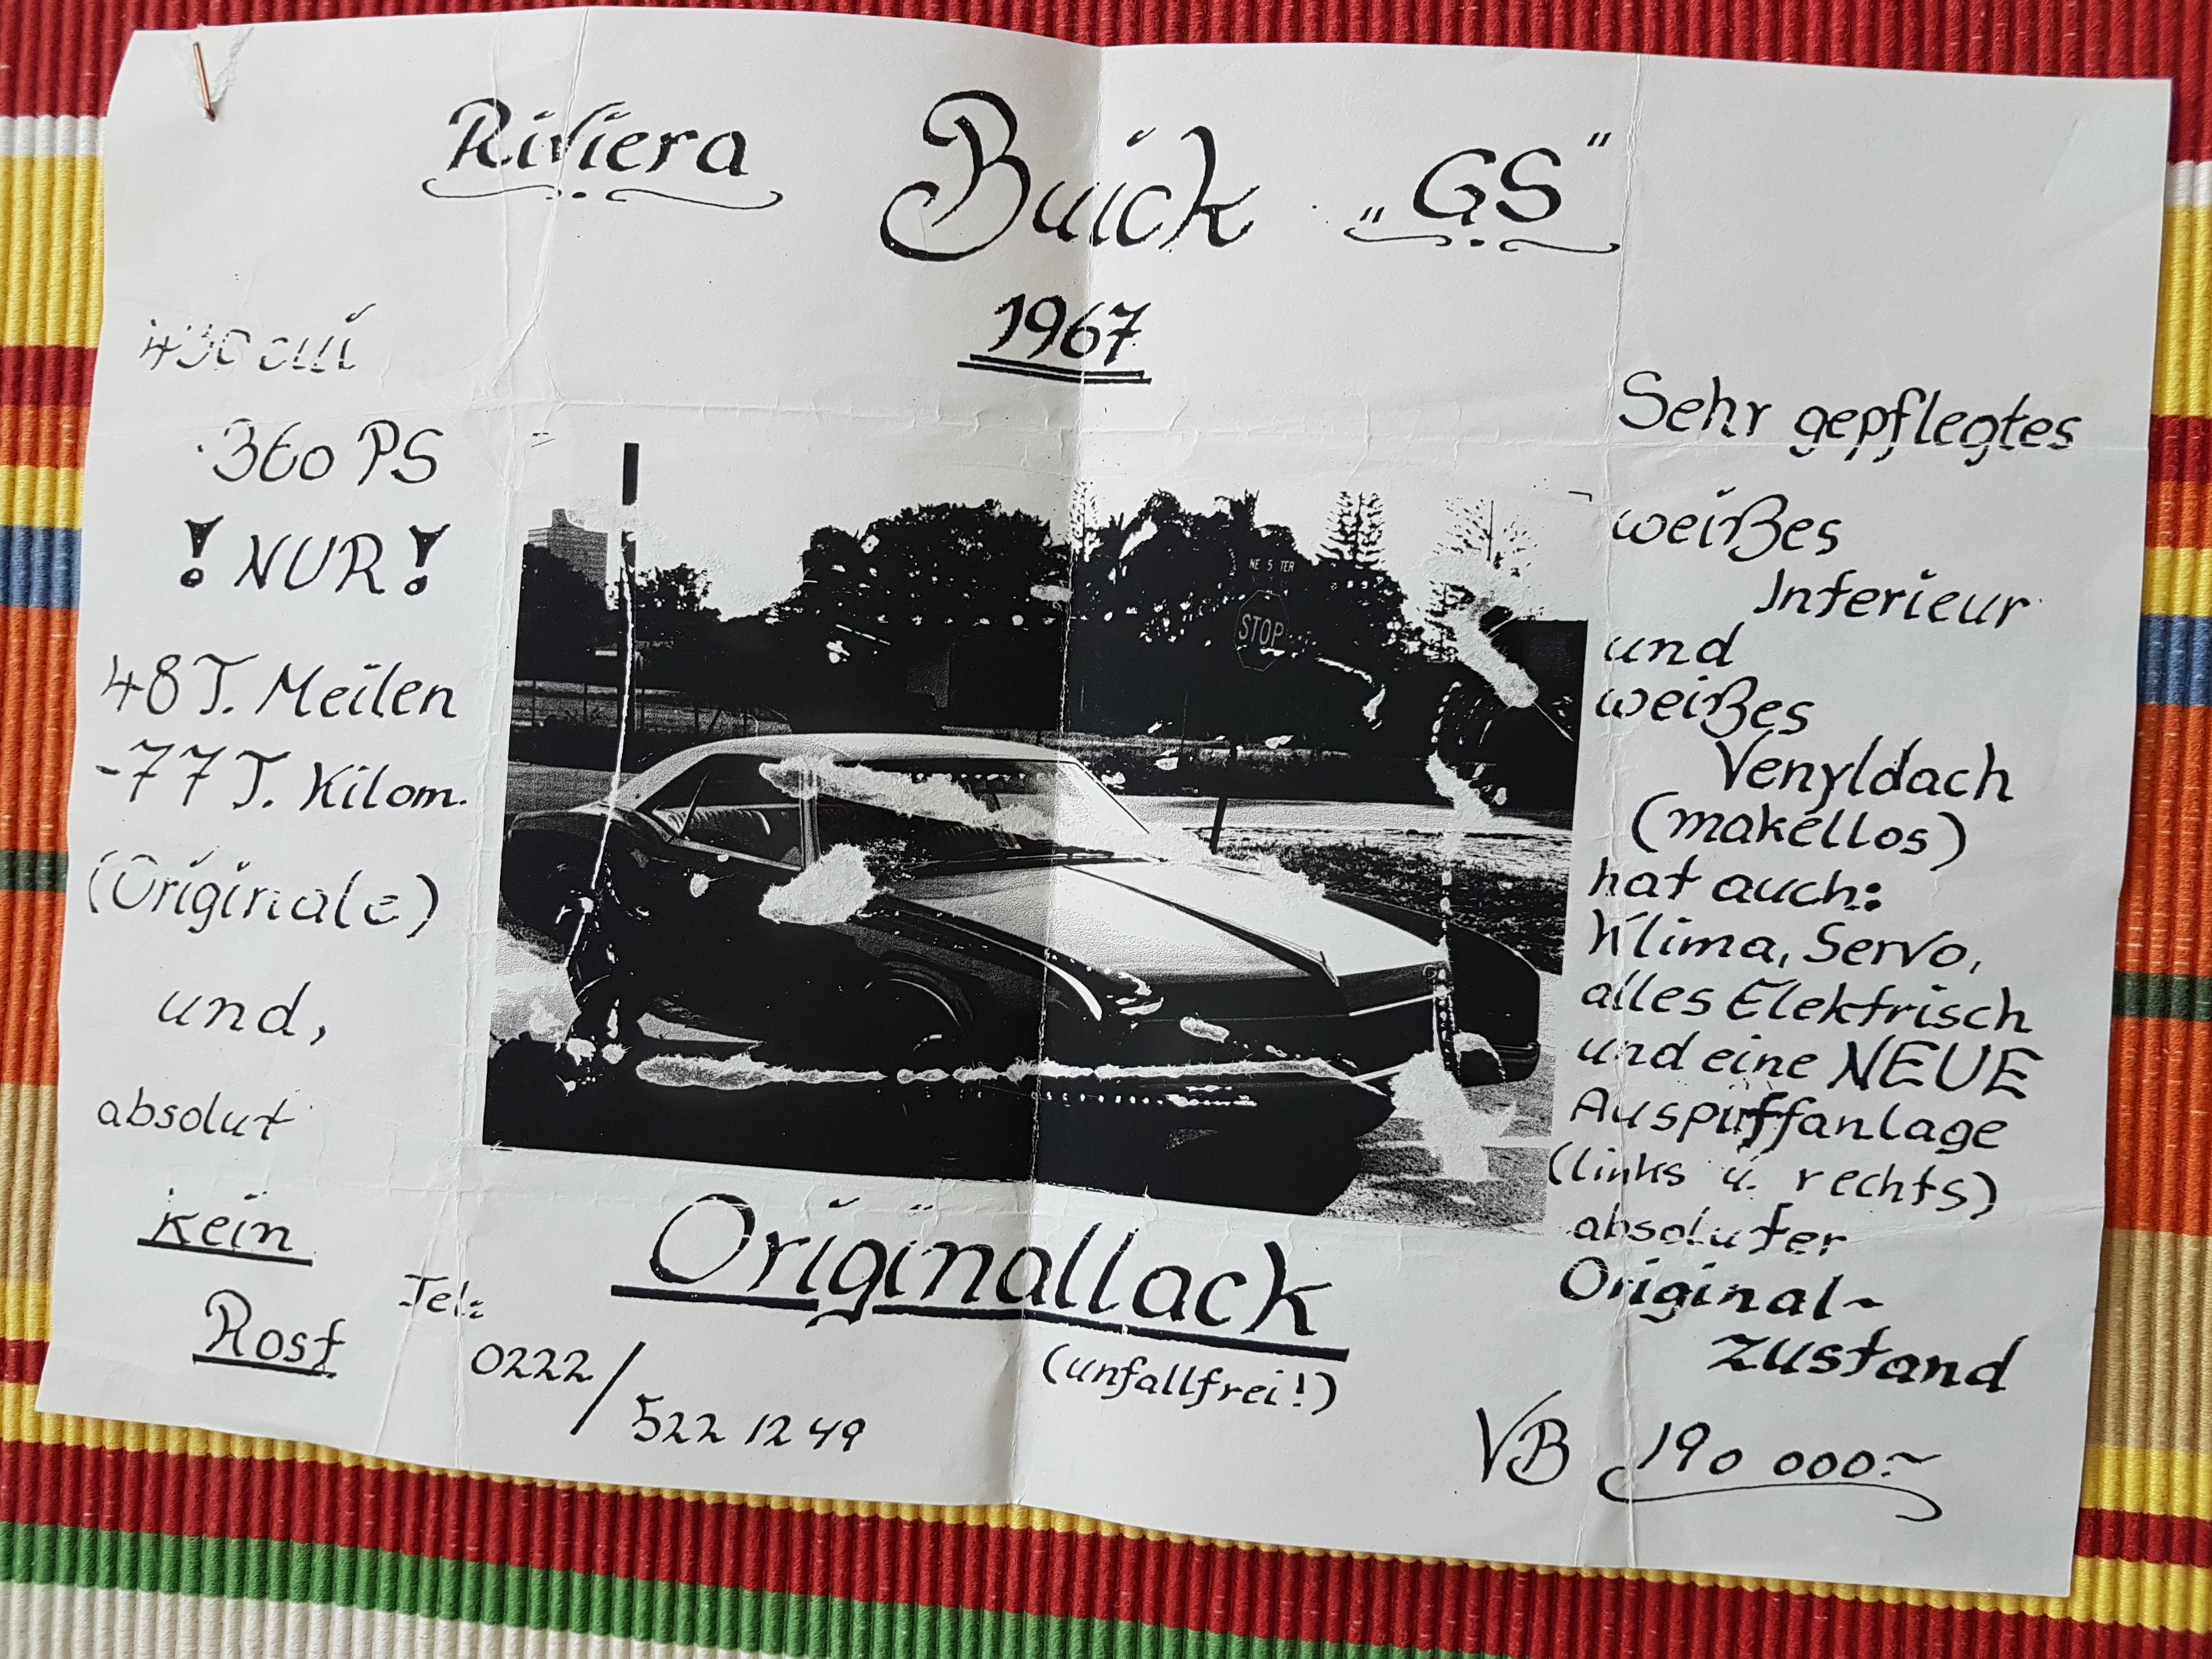 Riviera Buick „GS“
1967
430 cui
360 PS
! NUR !
48 T. Meilen
-77 T. Kilom.
(Originale)
und,
absolut
kein
Rost
NE 5 TER
STOP
Sehr gepflegtes
weißes
Interieur
und
weißes
Venyldach
(makellos)
hat auch:
Klima, Servo,
alles Elektrisch
und eine NEUE
Auspuffanlage
(links u. rechts)
absoluter
Original-
zustand
Originallack
(unfallfrei!)
Tel:
0222/
522 12 49
VB 190 000.-